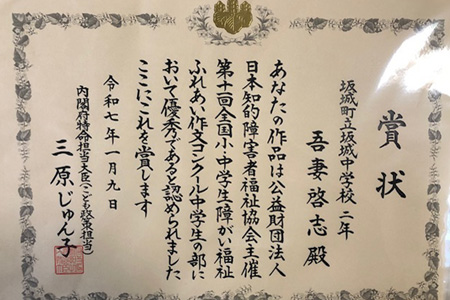 賞状
坂城町立坂城中学校 二年
吾妻啓志殿
あなたの作品は公益財団法人
日本知的障害者福祉協会主催
第十一回全国小・中学生障がい福祉
ふれあい作文コンクール中学生の部に
おいて優秀であると認められました
ここにこれを賞します
令和七年一月九日
内閣府特命担当大臣(こども政策担当)
三原じゅん子